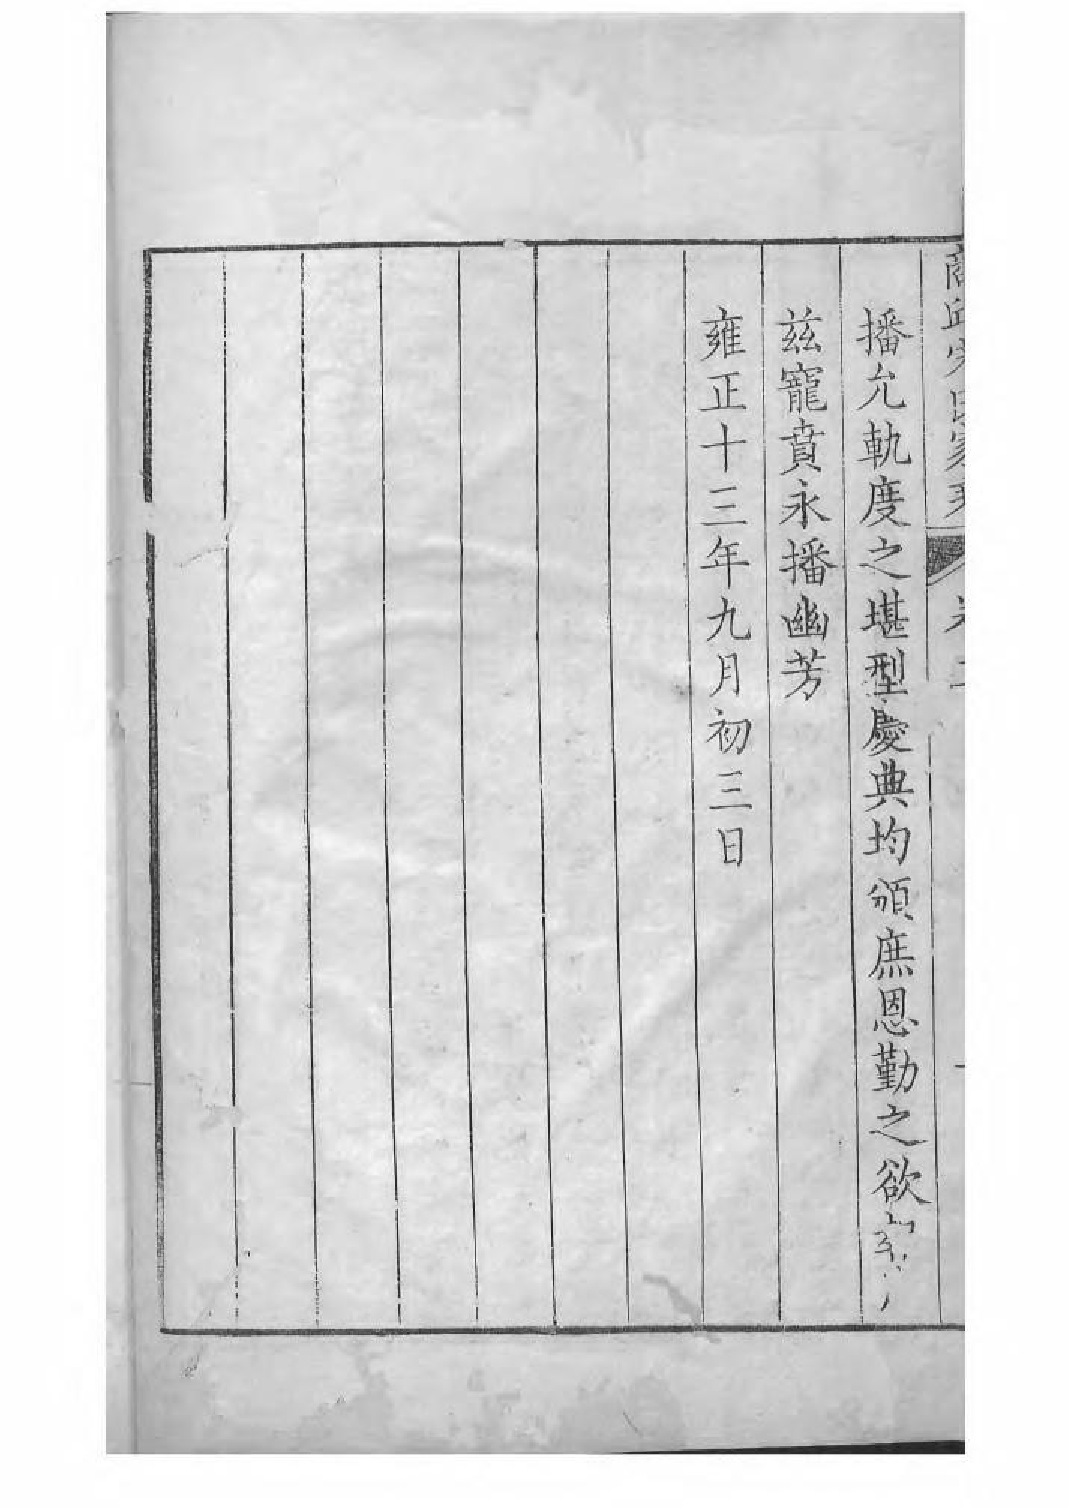 商邱宋氏家乘 卷二
播允軌度之堪型慶典均頒庶恩勤之欲
茲寵賁永播幽芳
雍正十三年九月初三日